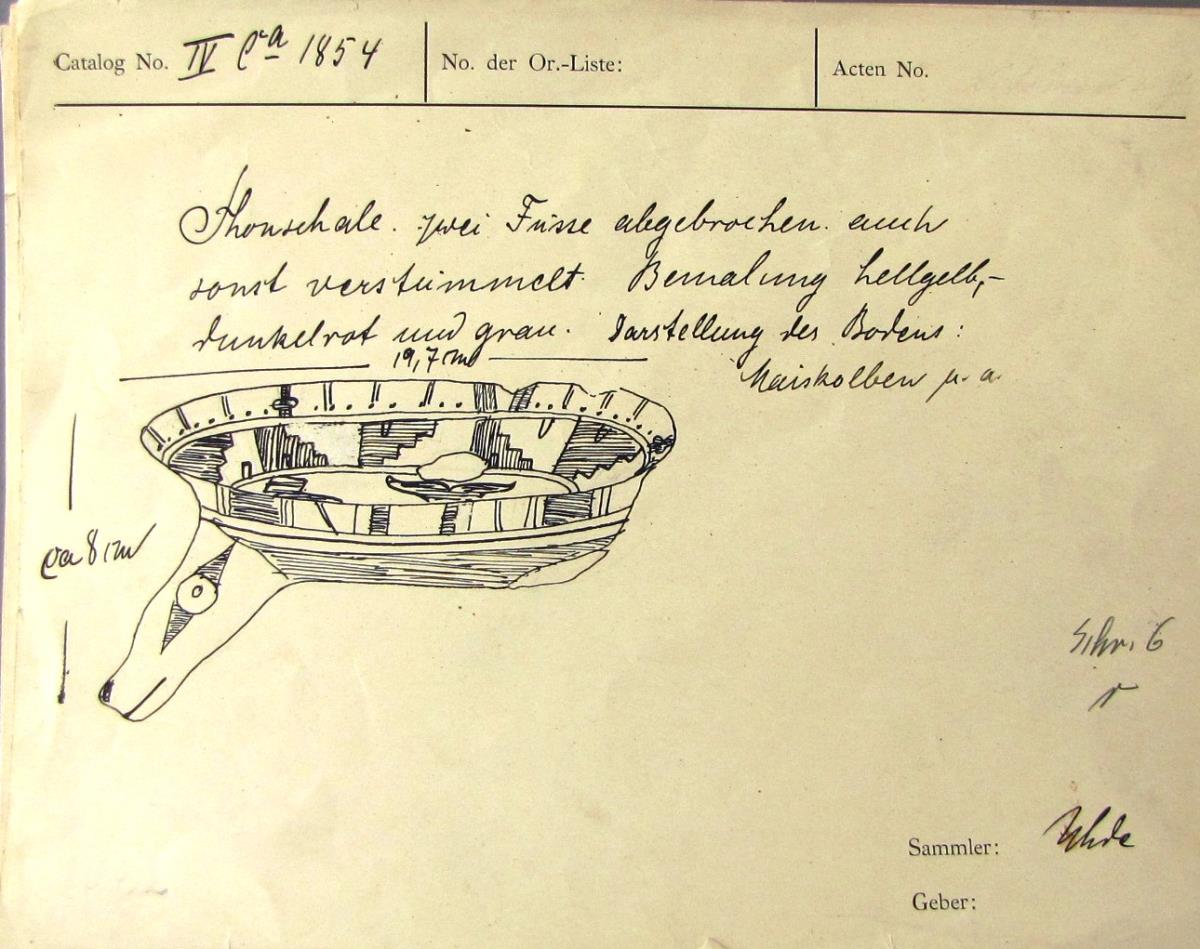 Catalog No. IV Ca 1854
No. der Or.-Liste:
Acten No.
Thonschale. zwei Füsse abgebrochen. auch
sonst verstümmelt. Bemalung hellgelb,-
dunkelrot und grau. Darstellung des Bodens:
Maiskolben u. a.
19,7 cm
ca 8 cm
Schr. 6
Sammler: Uhde
Geber: